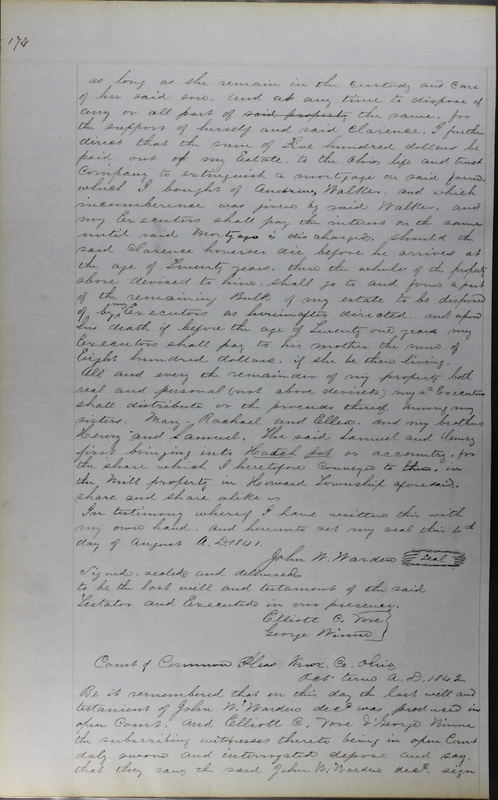 174
as long as she remain in the custody and care
of her said son. And at any time to dispose of
any or all part of said property the same, for
the support of herself and said Clarence. I further
direct that the sum of Five hundred dollars be
paid out of my Estate to the Ohio life and trust
Company to extinguish a mortgage on said farm
which I bought of Walker. and which
incumberence was given by said Walker. and
my Executors shall pay the interest on the same
until said Mortgage is discharged. Should the
said Clarence however die before he arrives at
the age of Twenty years. then the whole of the property
above devised to him. shall go to and form a part
of the remaining Bulk of my estate to be disposed
of by my Executors as hereinafter directed. and upon
his death if before the age of Twenty one years my
Executors shall pay to his mother the sum of
Eight hundred dollars. if she be then living.
All and every the remainder of my property both
real and personal (not above devised) my sd Executors
shall distribute or the proceeds thereof, among my
sisters. Mary Rachael and Ellen. and my brothers
Henry and Samuel. The said Samuel and Henry
first bringing into Hotch pot or accounting for
the share which I heretofore conveyed to them. in
the Mill property in Howard Township aforesaid.
share and share alike
In testimony whereof I have written this with
my own hand. and hereunto set my seal this 4d
day of August A. D. 1841.
John W. Warden Seal
Signed. sealed and delivered
to be the last will and testament of the said
Testator and Executed in our presence.
Elliott C. Vore
George Winne
Court of Common Pleas Knox. Co. Ohio
Oct. term A. D. 1842
Be it remembered that on this day the last will and
testament of John W. Warden decd was produced in
open Court. and Elliott C. Vore & George Winne
the subscribing witnesses thereto being in open Court
duly sworn and interrogated depose and say.
that they saw the said John W. Warden decd. sign